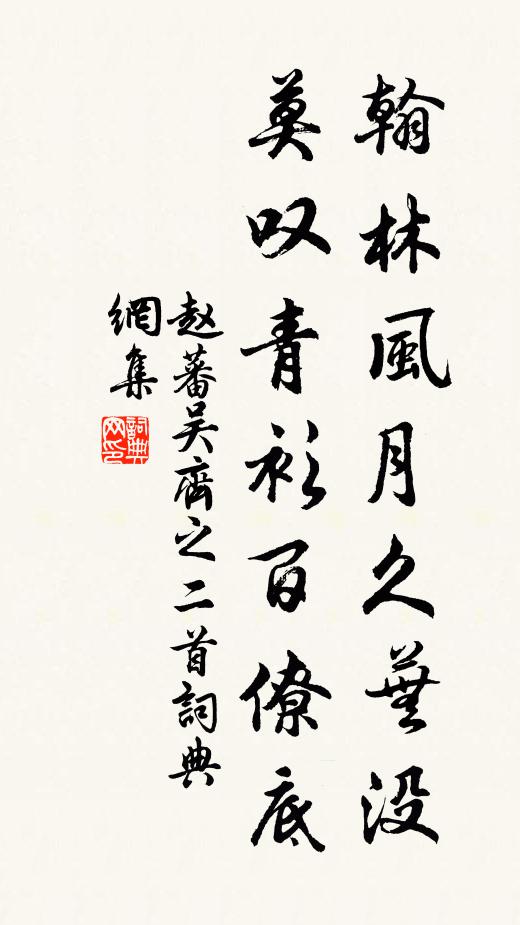 翰林風月久蕪没
莫叹青衫百僚底
赵蕃吴齊之二首詞典
網集
詞典
网印